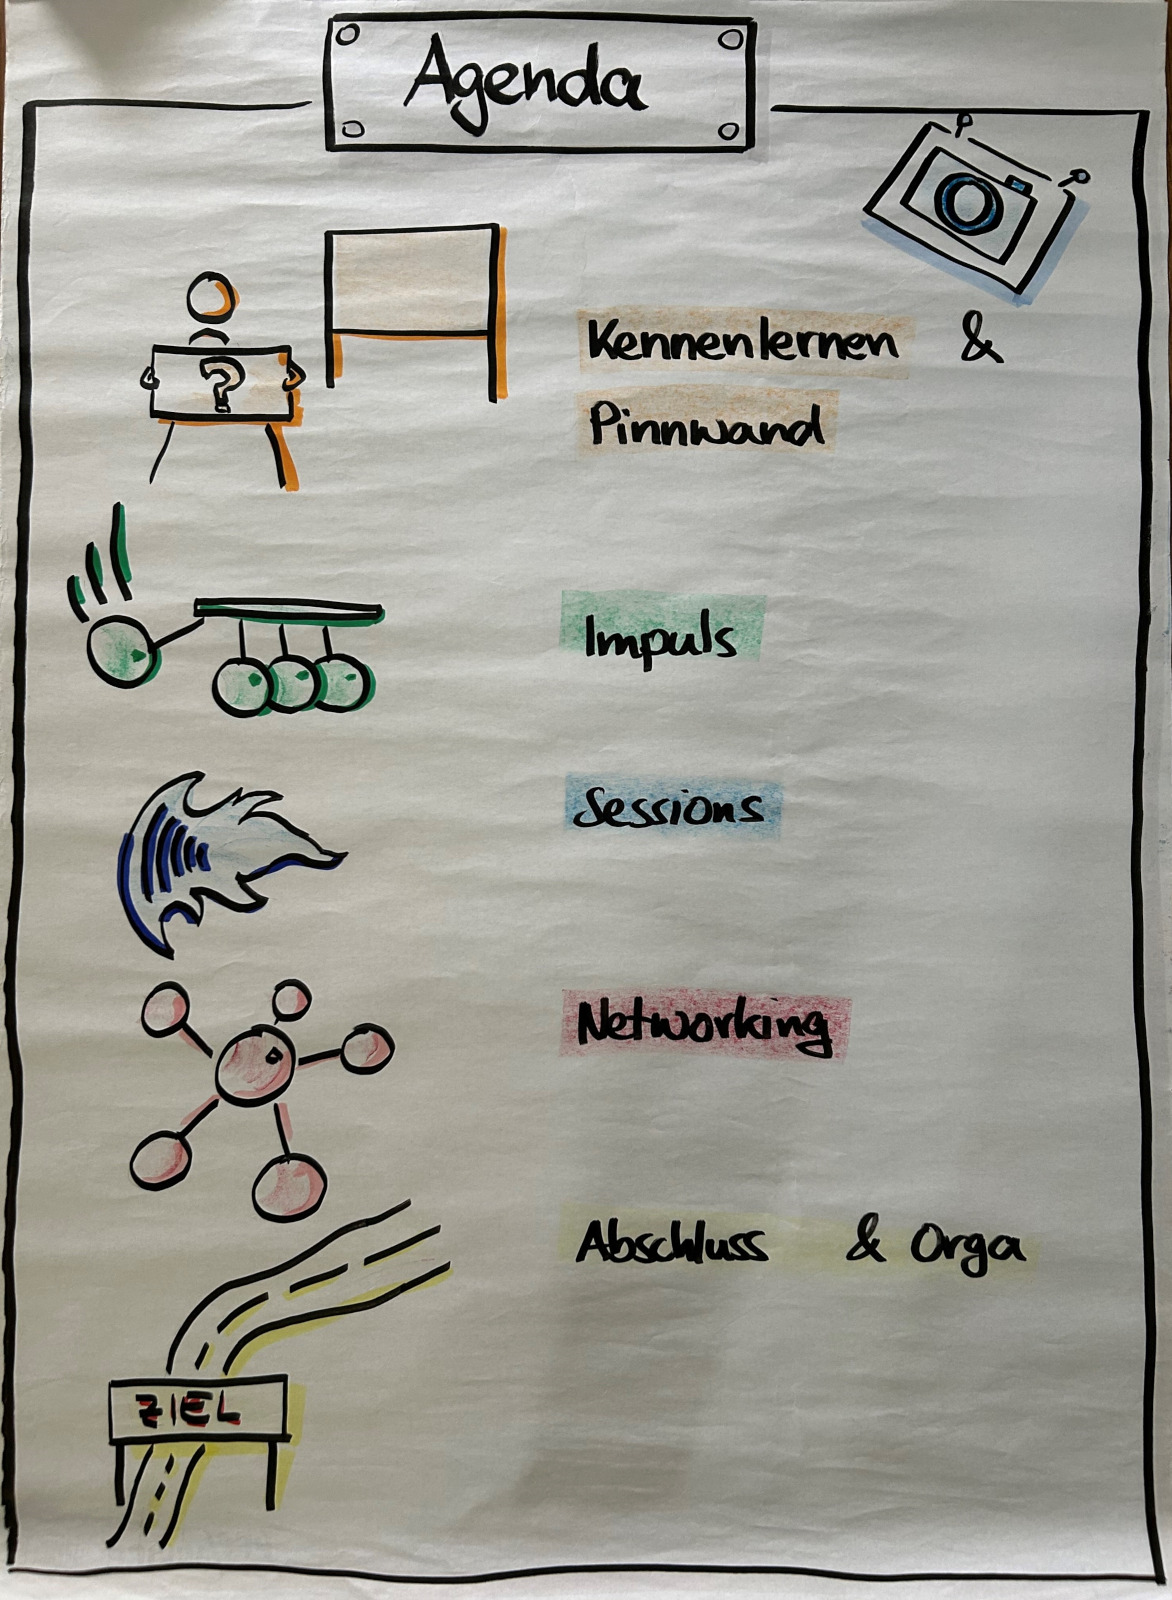 Agenda
Kennenlernen &
Pinnwand
?
Impuls
Sessions
Networking
Abschluss & Orga
ZIEL